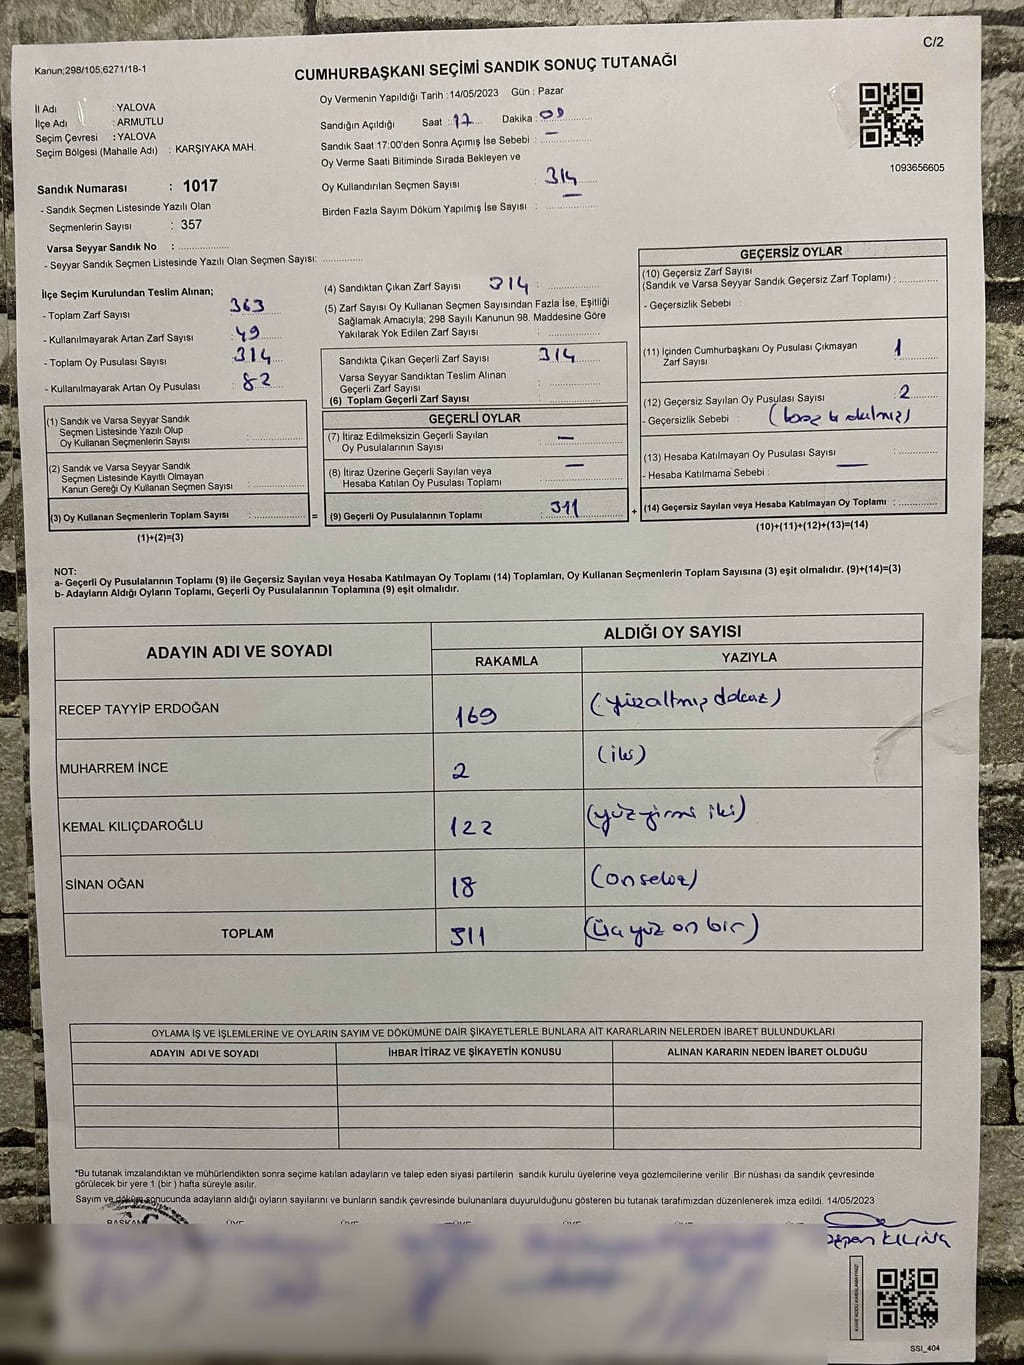 C/2
Kanun;298/105,6271/18-1
CUMHURBAŞKANI SEÇİMİ SANDIK SONUÇ TUTANAĞI
İl Adı : YALOVA
İlçe Adı : ARMUTLU
Seçim Çevresi : YALOVA
Seçim Bölgesi (Mahalle Adı) : KARŞIYAKA MAH.
Oy Vermenin Yapıldığı Tarih : 14/05/2023 Gün : Pazar
Sandığın Açıldığı Saat : 17 Dakika : 00
Sandık Saat 17:00'den Sonra Açımış İse Sebebi : —
Oy Verme Saati Bitiminde Sırada Bekleyen ve
Oy Kullandırılan Seçmen Sayısı : 314
Birden Fazla Sayım Döküm Yapılmış İse Sayısı : —
1093656605
Sandık Numarası : 1017
- Sandık Seçmen Listesinde Yazılı Olan
Seçmenlerin Sayısı : 357
Varsa Seyyar Sandık No :
- Seyyar Sandık Seçmen Listesinde Yazılı Olan Seçmen Sayısı:
İlçe Seçim Kurulundan Teslim Alınan;
- Toplam Zarf Sayısı : 363
- Kullanılmayarak Artan Zarf Sayısı : 49
- Toplam Oy Pusulası Sayısı : 314
- Kullanılmayarak Artan Oy Pusulası : 82
(1) Sandık ve Varsa Seyyar Sandık
Seçmen Listesinde Yazılı Olup
Oy Kullanan Seçmenlerin Sayısı :
(2) Sandık ve Varsa Seyyar Sandık
Seçmen Listesinde Kayıtlı Olmayan
Kanun Gereği Oy Kullanan Seçmen Sayısı :
(3) Oy Kullanan Seçmenlerin Toplam Sayısı :
(1)+(2)=(3)
=
(4) Sandıktan Çıkan Zarf Sayısı : 314
(5) Zarf Sayısı Oy Kullanan Seçmen Sayısından Fazla İse, Eşitliği
Sağlamak Amacıyla; 298 Sayılı Kanunun 98. Maddesine Göre
Yakılarak Yok Edilen Zarf Sayısı :
Sandıkta Çıkan Geçerli Zarf Sayısı : 314
Varsa Seyyar Sandıktan Teslim Alınan
Geçerli Zarf Sayısı :
(6) Toplam Geçerli Zarf Sayısı :
GEÇERLİ OYLAR
(7) İtiraz Edilmeksizin Geçerli Sayılan
Oy Pusulalarının Sayısı : —
(8) İtiraz Üzerine Geçerli Sayılan veya
Hesaba Katılan Oy Pusulası Toplamı : —
(9) Geçerli Oy Pusulalarının Toplamı : 311
+
GEÇERSİZ OYLAR
(10) Geçersiz Zarf Sayısı
(Sandık ve Varsa Seyyar Sandık Geçersiz Zarf Toplamı) :
- Geçersizlik Sebebi :
(11) İçinden Cumhurbaşkanı Oy Pusulası Çıkmayan
Zarf Sayısı : 1
(12) Geçersiz Sayılan Oy Pusulası Sayısı : 2
- Geçersizlik Sebebi :
(13) Hesaba Katılmayan Oy Pusulası Sayısı : —
- Hesaba Katılmama Sebebi :
(14) Geçersiz Sayılan veya Hesaba Katılmayan Oy Toplamı :
(10)+(11)+(12)+(13)=(14)
NOT:
a- Geçerli Oy Pusulalarının Toplamı (9) ile Geçersiz Sayılan veya Hesaba Katılmayan Oy Toplamı (14) Toplamları, Oy Kullanan Seçmenlerin Toplam Sayısına (3) eşit olmalıdır. (9)+(14)=(3)
b- Adayların Aldığı Oyların Toplamı, Geçerli Oy Pusulalarının Toplamına (9) eşit olmalıdır.
ADAYIN ADI VE SOYADI ALDIĞI OY SAYISI
RAKAMLA YAZIYLA
RECEP TAYYİP ERDOĞAN 169 (yüzaltmış dokuz)
MUHARREM İNCE 2 (iki)
KEMAL KILIÇDAROĞLU 122 (yüzyirmi iki)
SİNAN OĞAN 18 (onsekiz)
TOPLAM 311 (üç yüz on bir)
OYLAMA İŞ VE İŞLEMLERİNE VE OYLARIN SAYIM VE DÖKÜMÜNE DAİR ŞİKAYETLERLE BUNLARA AİT KARARLARIN NELERDEN İBARET BULUNDUKLARI
ADAYIN ADI VE SOYADI İHBAR İTİRAZ VE ŞİKAYETİN KONUSU ALINAN KARARIN NEDEN İBARET OLDUĞU
*Bu tutanak imzalandıktan ve mühürlendikten sonra seçime katılan adayların ve talep eden siyasi partilerin sandık kurulu üyelerine veya gözlemcilerine verilir Bir nüshası da sandık çevresinde
görülecek bir yere 1 (bir) hafta süreyle asılır.
Sayım ve döküm sonucunda adayların aldığı oyların sayılarını ve bunların sandık çevresinde bulunanlara duyurulduğunu gösteren bu tutanak tarafımızdan düzenlenerek imza edildi. 14/05/2023
BAŞKAN ÜYE ÜYE ÜYE ÜYE ÜYE
KILINÇ
SSI_404